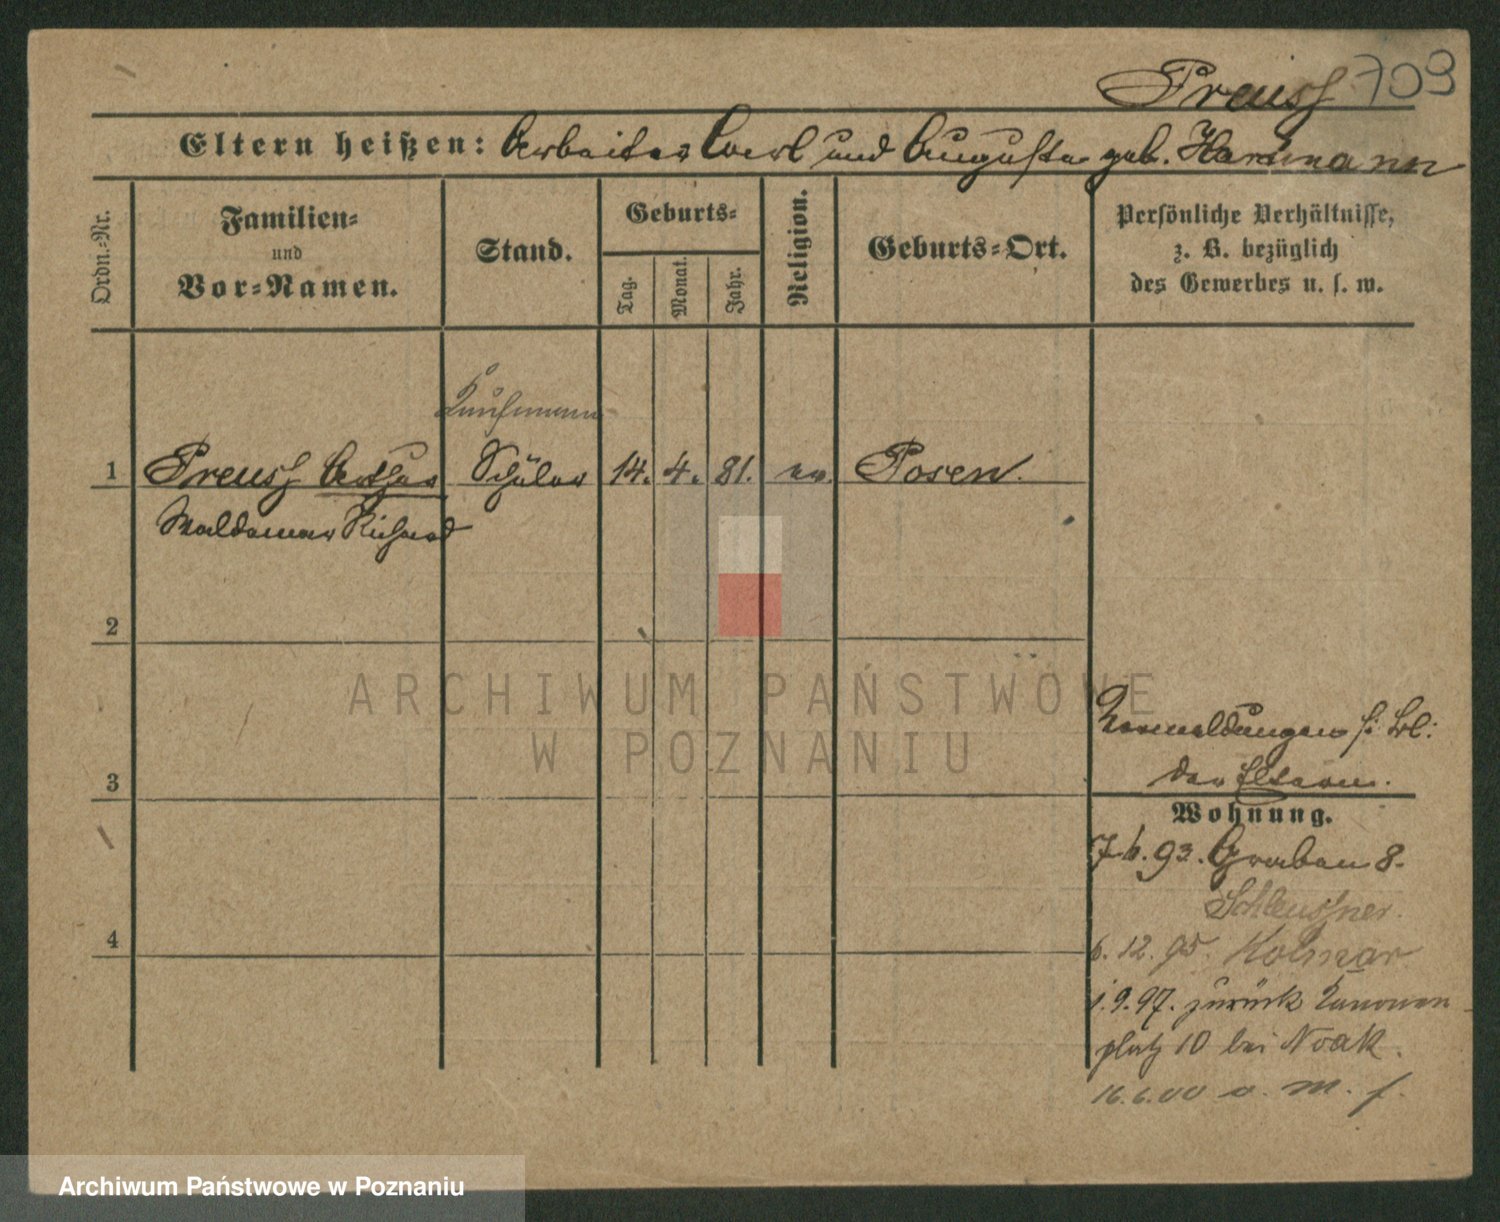 Preuss 709
Eltern heißen: Arbeiter Carl und Auguste geb. Hartmann
Ordn.-Nr.
Familien-
und
Vor-Namen.
Stand.
Geburts-
Tag.
Monat.
Jahr.
Religion.
Geburts-Ort.
Persönliche Verhältnisse,
z. B. bezüglich
des Gewerbes u. s. w.
Kaufmann
1 Preuss Arthur Schüler 14. 4. 81. ev. Posen.
Waldemar Richard
2
ARCHIWUM PAŃSTWOWE
W POZNANIU
3
Anmeldungen s: Bl:
der Eltern.
Wohnung.
7.6.93. Graben 8.
Schleussner.
4
6.12.95. Kolmar
1.9.97. zurück Kanonen
platz 10 bei Noak.
16.6.00 a. M. f.
Archiwum Państwowe w Poznaniu